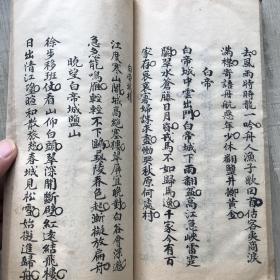 去風雨時時龍一吟舟人漁子歌回首估客胡商淚
滿襟寄語舟航惡年少休翻鹽井擲黃金
白帝
白帝城中雲出門白帝城下雨翻盆高江急峽雷霆
鬬翠木蒼藤日月昏戎馬不如歸馬逸千家今有百
家存哀哀寡婦誅求盡慟哭秋原何處村
白帝城樓
江度寒山閣城高絕塞樓翠屏宜晚對白谷會深遊
急急能鳴雁輕輕不下鷗彝陵春色起漸擬放扁舟
曉望白帝城鹽山
徐步移班杖看山仰白頭翠深開斷壁紅遠結飛樓
日出清江望暄和散旅愁春城見松雪始擬進歸舟